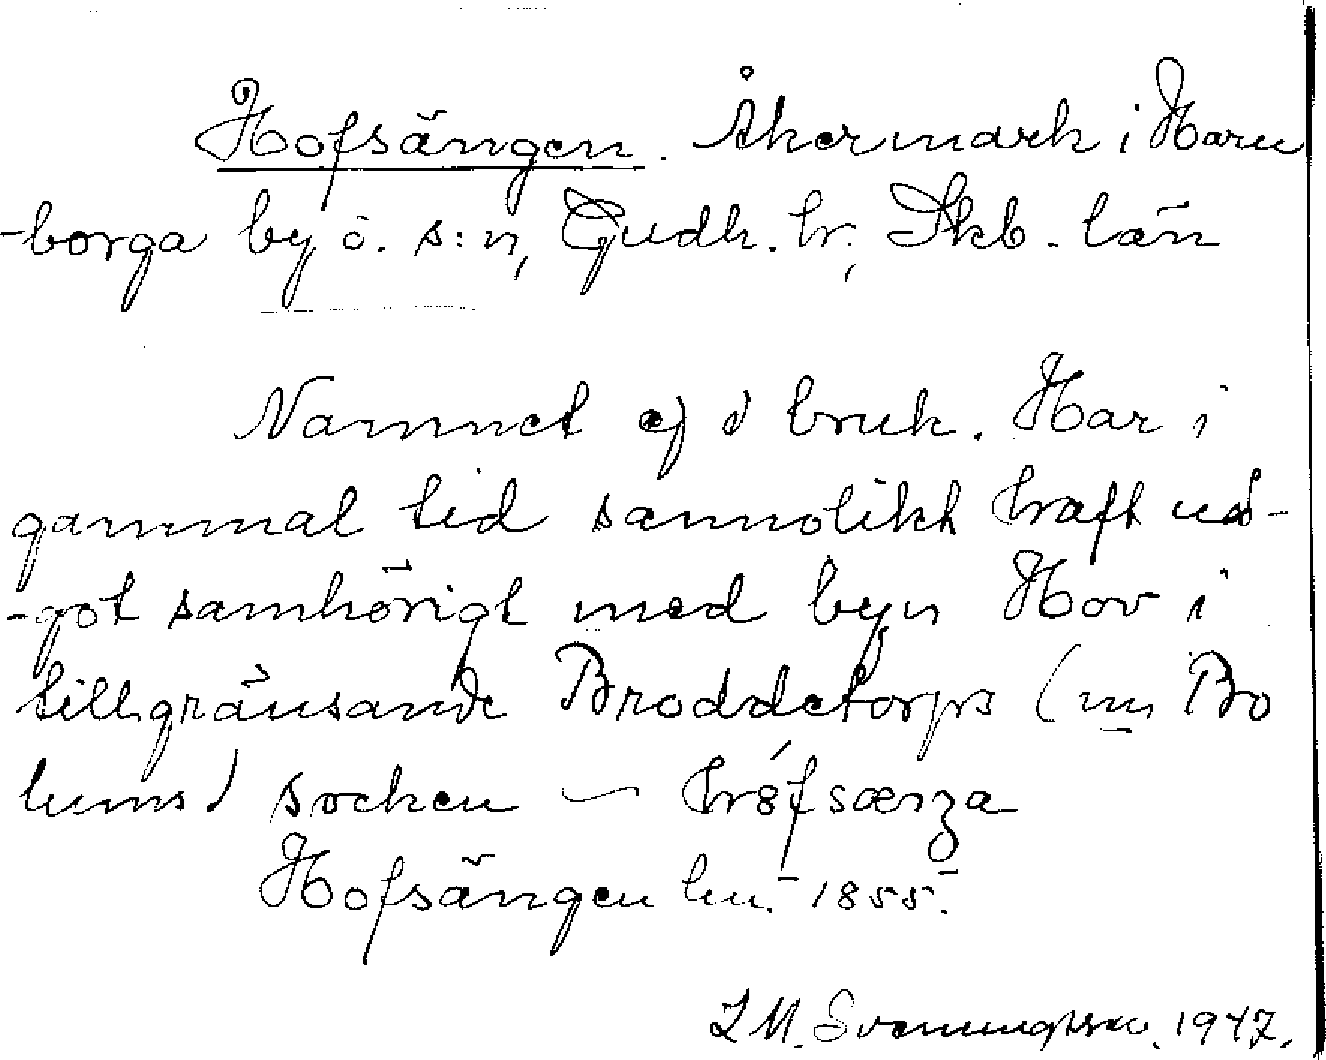 Hofsängen. Åkermark i Horn
-borga by o. s:n, Gudh. hr, Skb. län
Namnet ej i bruk. Har i
gammal tid sannolikt haft nå-
-got samhörigt med byn Hov i
tillgränsande Broddetorps (nu Bo
lums) socken — hófsæŋa
Hofsängen lm. 1855.
1947.